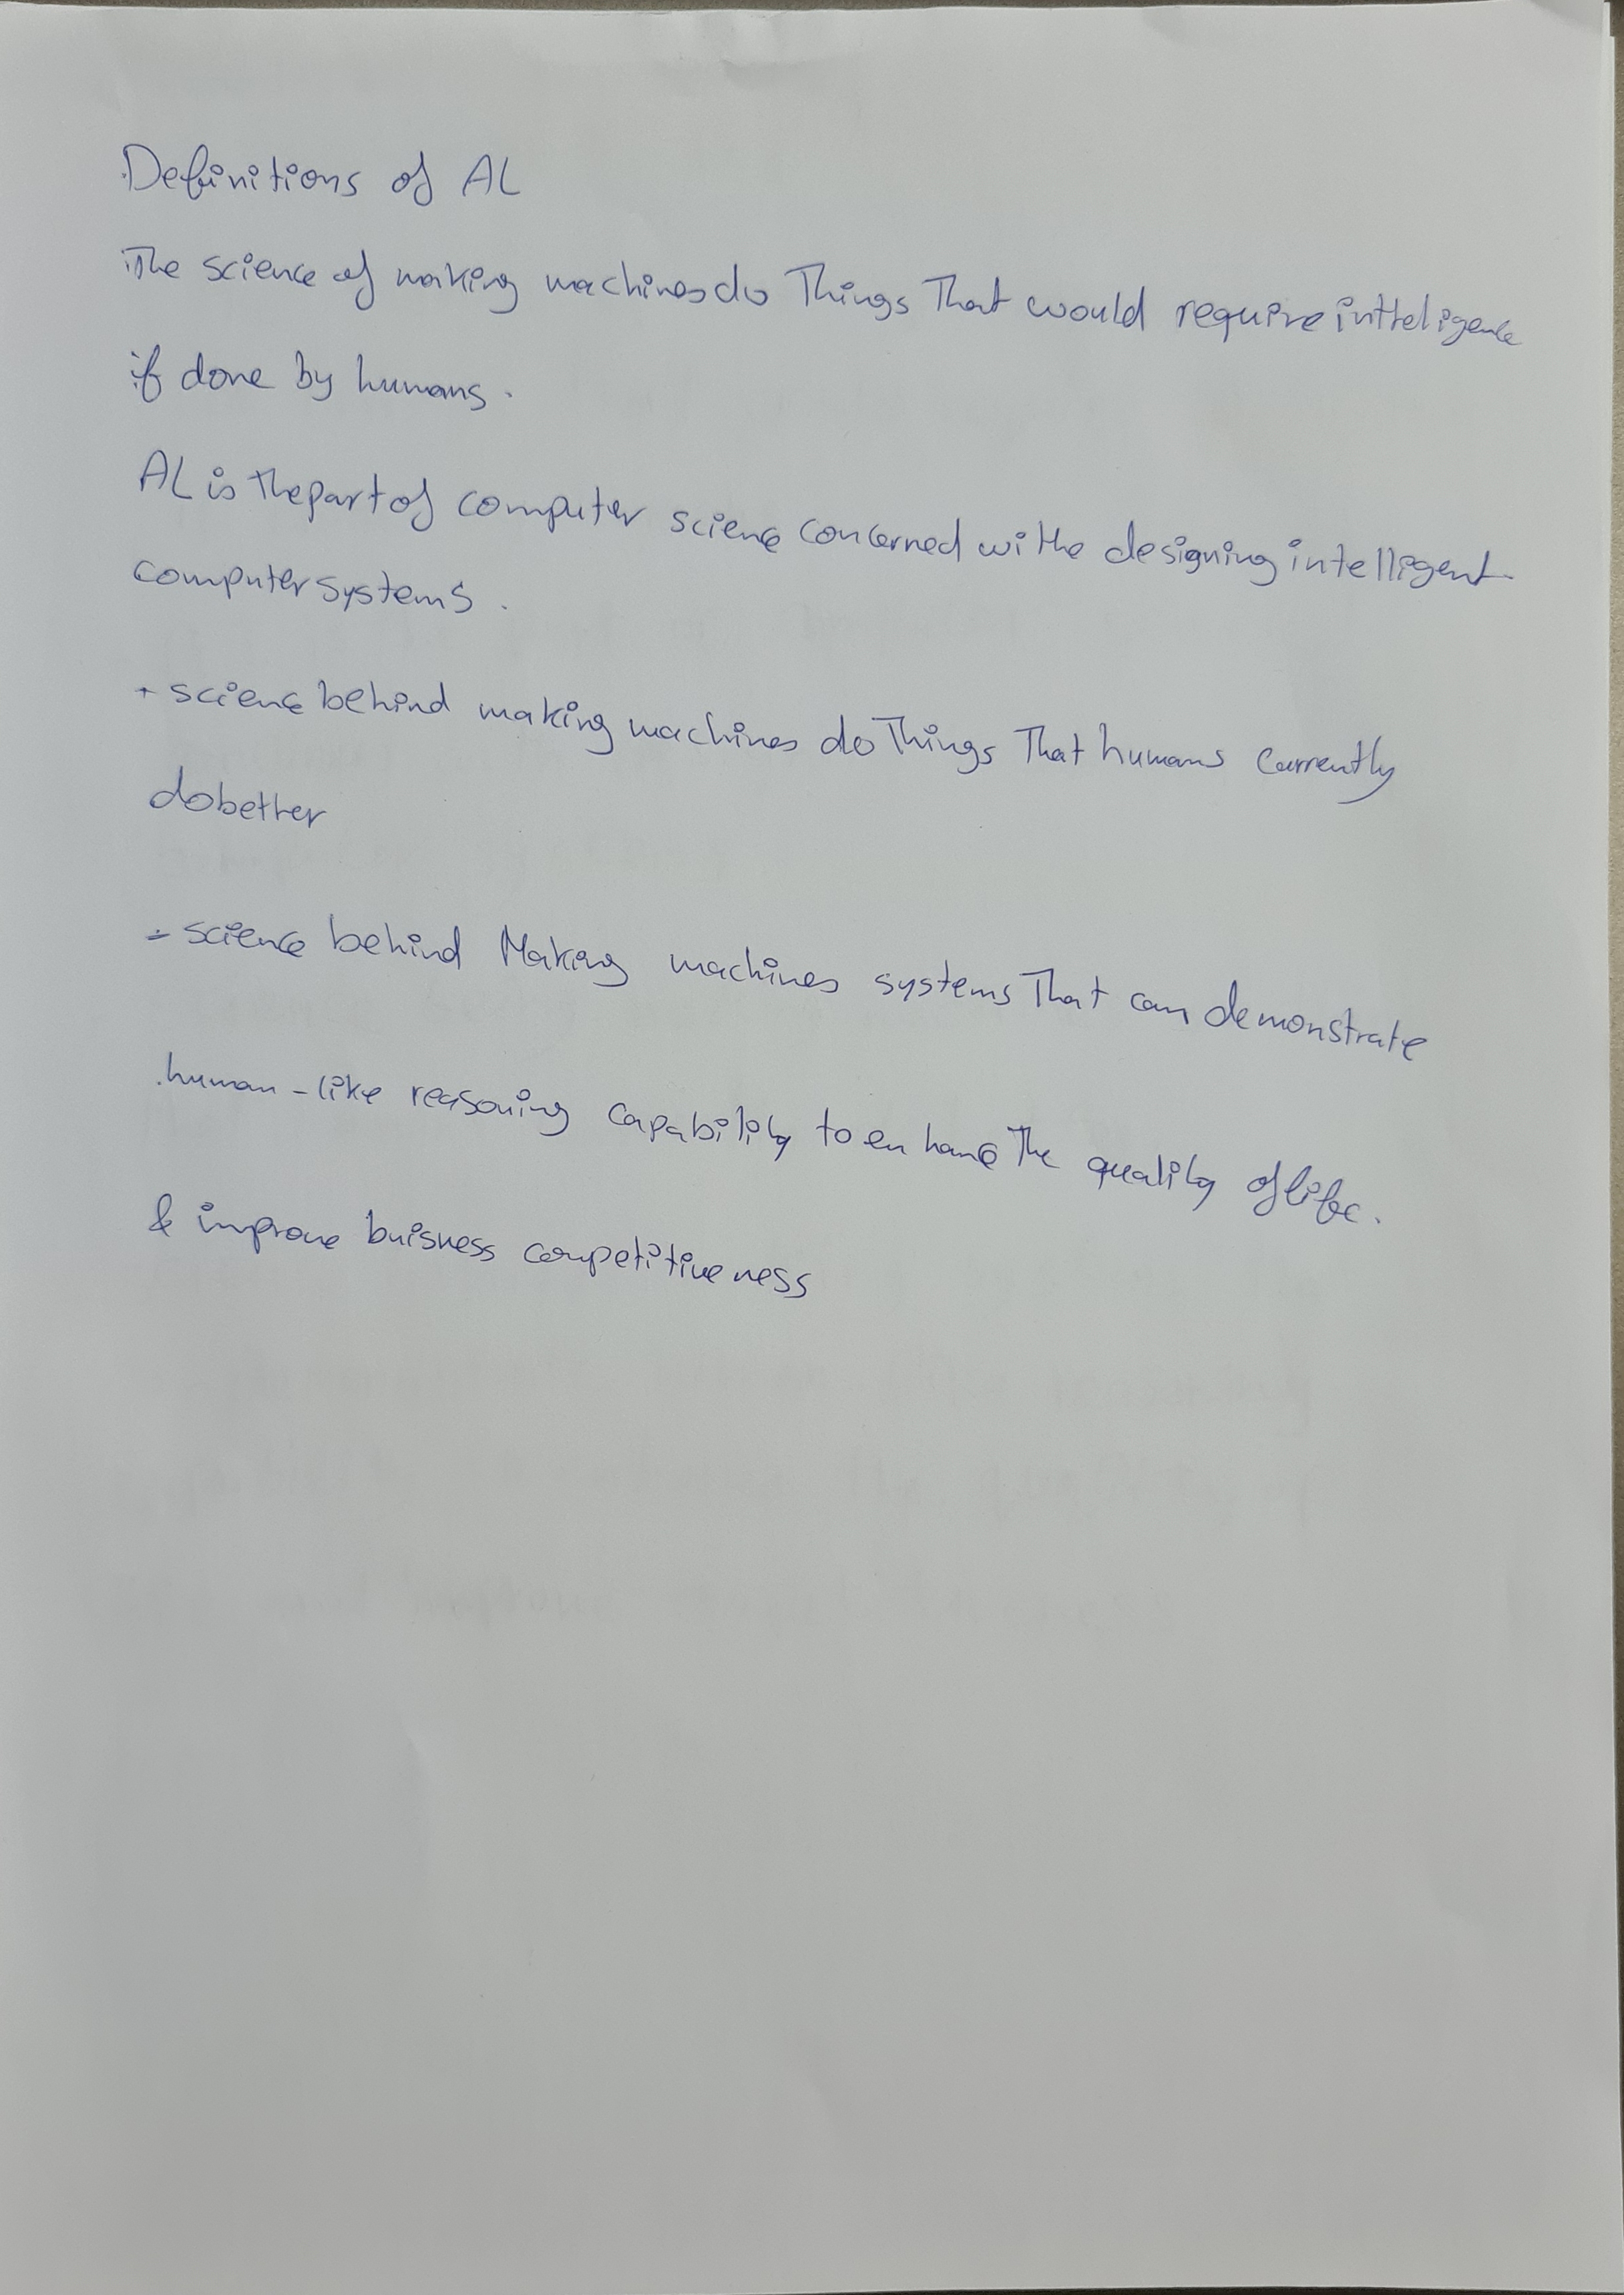 Definitions of AL
The science of making machines do Things That would require inttelligence
if done by humans.
AL is The part of computer science concerned withe designing intelligent
computer systems.
+ science behind making machines do Things That humans currently
do better
- science behind Making machines systems That can demonstrate
human-like reasoning capability to enhance The quality of life.
& improve buisness competitiveness